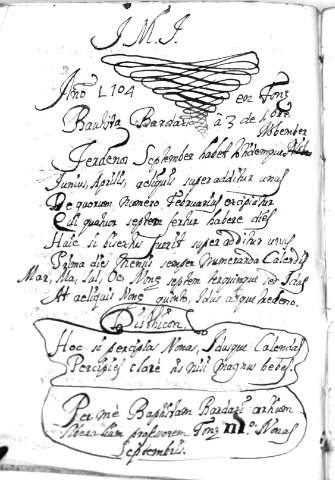 J. M. J.
Año 1704 en Tonz
Bautista Bardaxi à 3 de 7bre
Terdenos September habet Novemque November
Junius, Aprilis, reliquis superadditur unus
De quorum numero Februarius excipitur
Est quatuor septem fertur habere dies
Huic si bisextus fuerit superadditur unus
Prima dies mensis semper numeranda Calendis
Mar, Ma, Jul, Oc, Nonę septem terquinque der Idus
At reliquis Nonę quinto, Idus atque
Disthicon
Hoc si percipias Nonas, Idusque Calendas
Percipies clare nisi magnus bebes
Per me Baptistam Bardaxi artium
liberalium profesorem Tonz Nonas
Septembris.